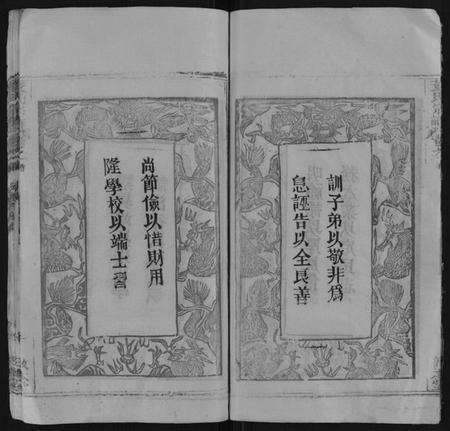 訓子弟以敬非爲
息誣告以全良善
尚節儉以惜財用
隆學校以端士習